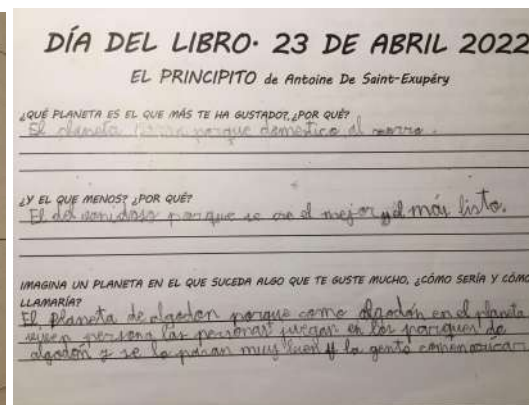 DÍA DEL LIBRO· 23 DE ABRIL 2022
EL PRINCIPITO de Antoine De Saint-Exupéry
¿QUÉ PLANETA ES EL QUE MÁS TE HA GUSTADO?¿POR QUÉ?
El planeta porque domestico al zorro.
¿Y EL QUE MENOS? ¿POR QUÉ?
El del vanidoso porque se cre el mejor y el más listo.
IMAGINA UN PLANETA EN EL QUE SUCEDA ALGO QUE TE GUSTE MUCHO, ¿CÓMO SERÍA Y CÓMO
LLAMARÍA?
El planeta de algodon porque como algodón en el planeta
viven persona las personas juegan en los parques de
algodón y se lo pasan muy bien y la gente comen azucar